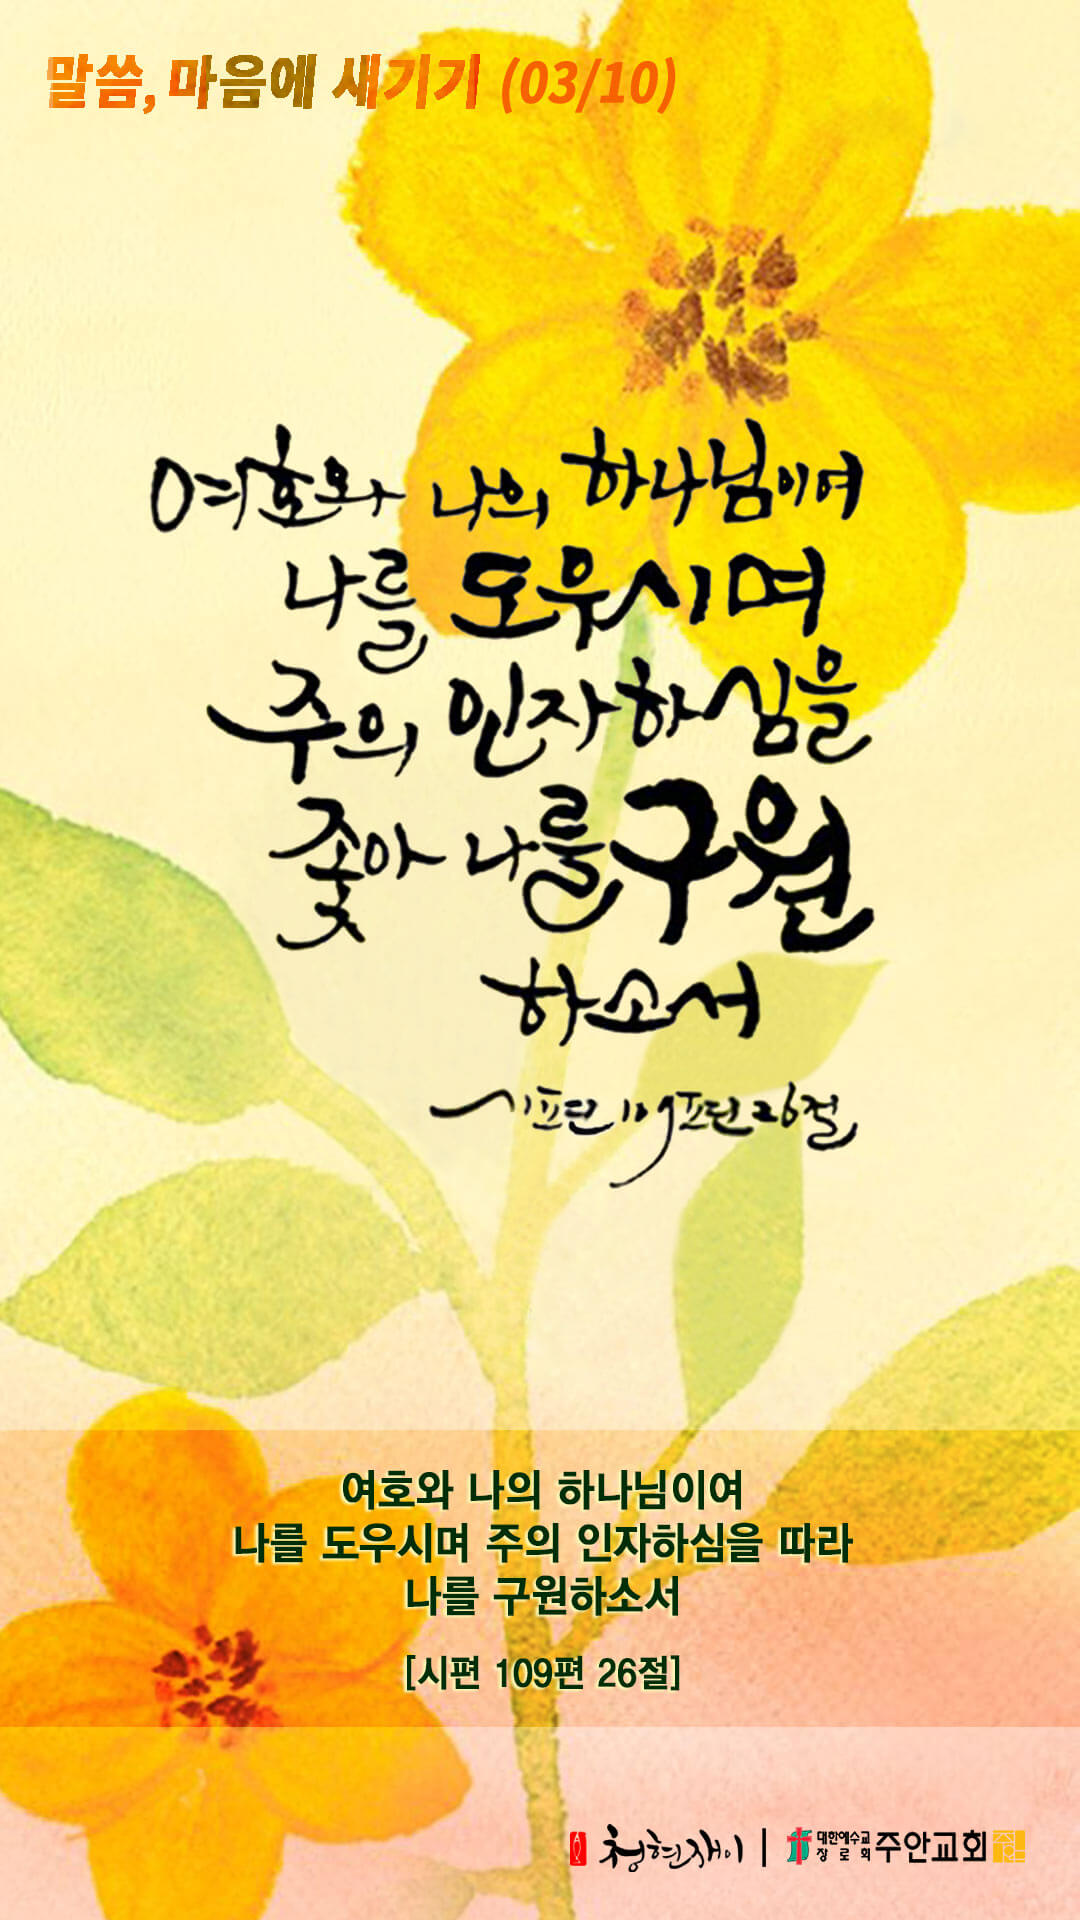 말씀, 마음에 새기기 (03/10)
여호와 나의 하나님이여
나를 도우시며
주의 인자하심을
좇아 나를 구원
하소서
시편 109편 26절
여호와 나의 하나님이여
나를 도우시며 주의 인자하심을 따라
나를 구원하소서
[시편 109편 26절]
청현재이 | 대한예수교장로회 주안교회